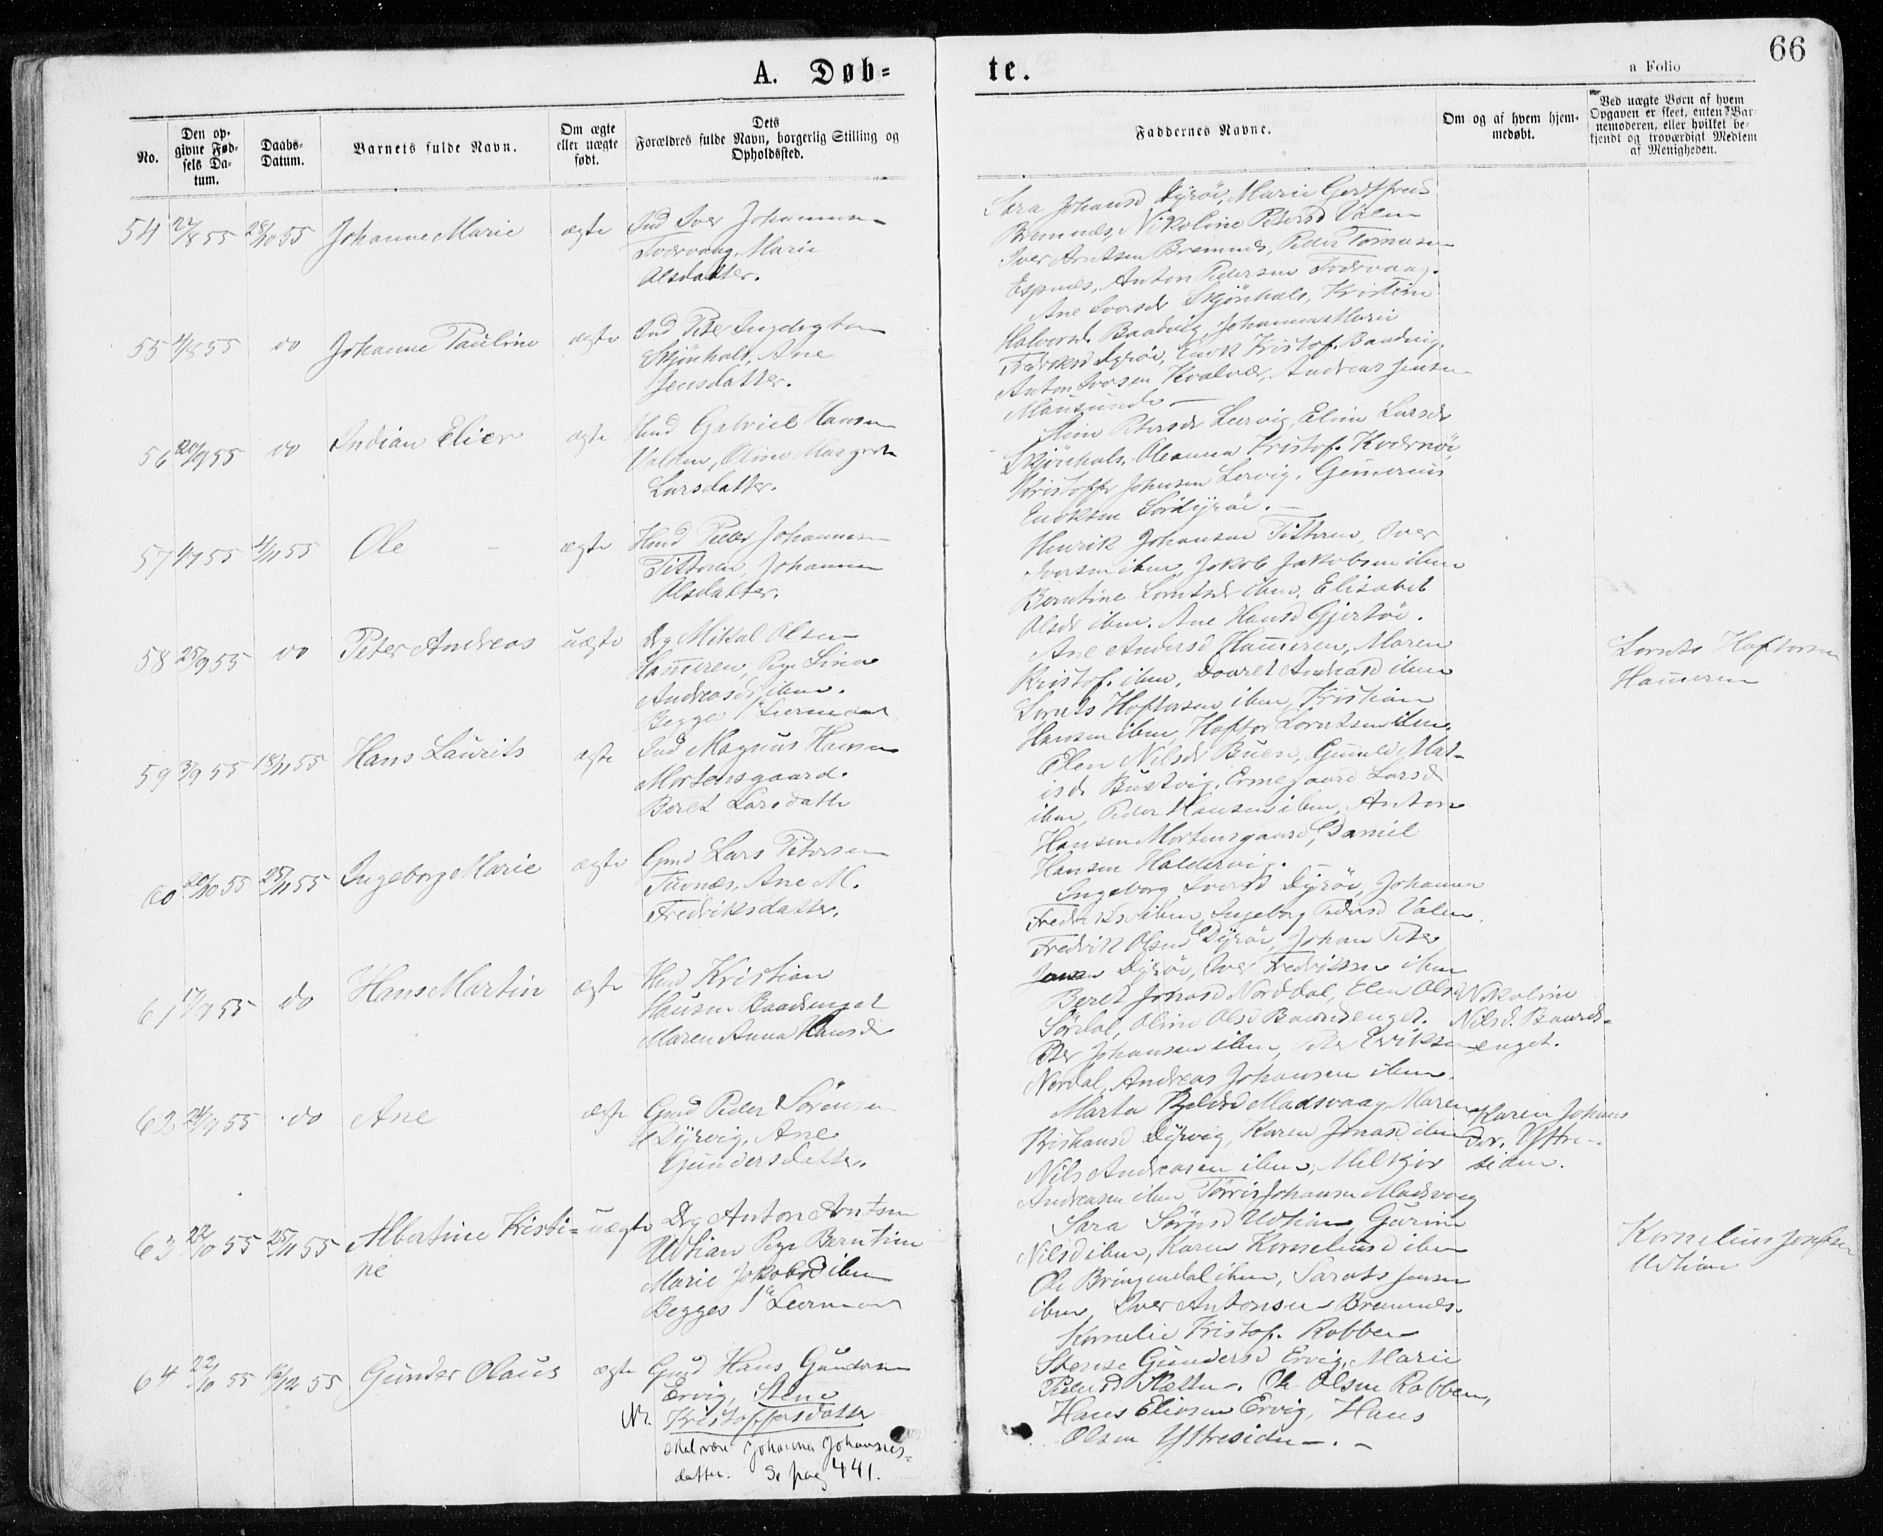 66
A. Døb=
te.
a Folio
No.
Den op-
givne Fød-
sels Da-
tum.
Daabs-
Datum.
Barnets fulde Navn.
Om ægte
eller uægte
født.
Dets
Forældres fulde Navn, borgerlig Stilling og
Opholdssted.
Faddernes Navne.
Om og af hvem hjem-
medøbt.
Ved uægte Børn af hvem
Opgaven er skeet, enten Bar-
nemoderen, eller hvilket be-
kjendt og troværdigt Medlem
af Menigheden.
54 55 28/10 55 Johanne Marie ægte Ind Iver Johannesen
Marie
Olsdatter.
Sara Johansd Dyrøi, Marie
Bremnes, Nikoline Petersd Valen
Iver Arntsen Bremnes, Peder Tomasen
Espnes, Anton Pedersen
55 /8 55 do Johanne Pauline ægte Ind Peter
Skjønhals, Ane
Jensdatter.
Ane Iversdr Skjønhals, Kristine
Halvorsd. Baadvig, Johanna Marie
Dyrøi, Kristof. Baadvig,
Anton Iversen Kvalvær, Andreas Jensen
Mausunde
56 20/9 55 do Indian Elier ægte Hmd Gabriel Hansen
Valden, Oline Margrete
Larsdatter.
Stine Petersdr Leervig, Eline Larsdr
Skjønhals, Oleanna Kristof. Kvernøi,
Kristoffer Johnsen Lervig,
Sørdyrøi.
57 4/7 55 4/11 55 Ole ægte Hmd Peder Johannesen
Titteren, Johanna
Olsdatter.
Henrik Johansen Titteren, Iver
Iversen ibm, Jakob Jakobsen ibm
Berntine Lorntsdr ibm, Elisabet
Olsdr ibm. Ane Hansd Gjertøi.
58 25/9 55 do Peter Andreas uægte Ug Mikal Olsen
Hammeren, Pige Lina
Andreasdr ibm.
Begges 1ste Leiermaal
Ane Andersd Hammeren, Maren
Kristof. ibm, Andreasd ibm
Lornts Haftorsen ibm, Kristian
Hansen ibm, Haftor Lorntsen ibm.
Lornts Haftorsen
Hammeren
59 3/9 55 18/11 55 Hans Laurits ægte Ind Magnus Hansen
Mortensgaard.
Beret Larsdatter
Elen Nilsdr Buen, Gunild Mat-
isdr Bustvig, Ermegaard Larsd
ibm, Peder Hansen ibm, Anton
Hansen Mortensgaard, Daniel
Hansen Haldorvig.
60 20/10 55 25/11 55 Ingeborg Marie ægte Gmd Lars Petersen
Tuvnæs, Ane M.
Fredriksdatter.
Ingeborg Iversd Dyrøi, Johanna
Fredriksd ibm, Ingeborg Pedersd Valen,
Fredrik Olsen Dyrøi, Johan Peter
Jensen Dyrøi, Iver Fredriksen ibm
61 17/9 55 do Hans Martin ægte Hmd Kristian
Hansen Baardsenget
Maren Anna Hansdr
Beret Jonasd Norddal, Elen Olsd Nikoline
Sørdal, Oline Olsd Baardsenget. Nilsd. Baards-
Peter Johansen ibm, Peter Eriksen enget.
Nordal, Andreas Johansen ibm.
62 24/9 55 do Ane ægte Gmd Peder Sörensen
Dyrvig, Ane
Gundersdatter.
Marta Madsvaag, Maren Karen Johans
Kristiansd Dyrvig, Karen Jonasd ibm dtr. Yttre-
Nils Andreasen ibm, Melkior siden.
Andreasen ibm, Tørris Johansen Madsvaag
63 22/10 55 25/11 55 Albertine Kristi= uægte Ug Anton Arntsen
ne Udtian Pige Berntine
Marie Jakobsd ibm
Begges 1ste Leiermaal
Sara Sørensd Udtian, Gurine
Nilsd ibm, Karen Korneliusd ibm
Ole Bringendal ibm, Jensen
ibm, Iver Antonsen Bremnes
Kornelius Josefsen
Udtian
64 22/10 55 16/12 55 Gunder Olaus ægte Gmd Hans Gundersen
Ervig, Stene
N. Kristoffersdatter
skal være Johanna Johannes-
datter. Se pag 441.
Kornelie Kristof. Robben
Gundersd Ervig, Marie
Pedersd Slætten. Ole Olsen Robben,
Hans Eliasen Ervig, Hans
Olsen Yttresiden.